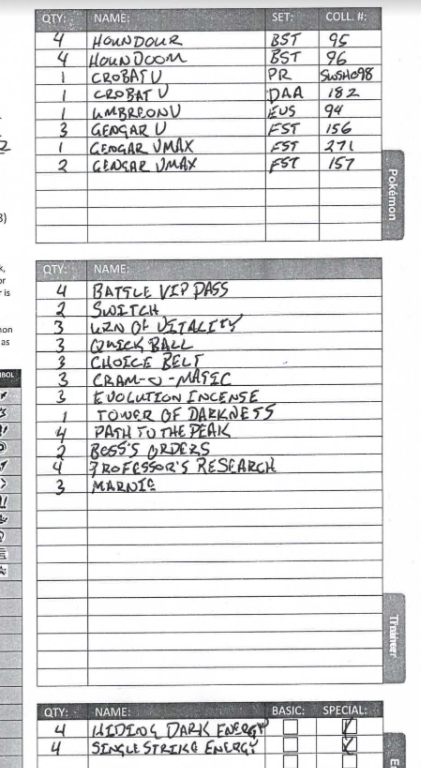 QTY: NAME: SET: COLL. #:
4 HOUNDOUR BST 95
4 HOUNDOOM BST 96
1 CROBAT V PR SWSH098
1 CROBAT V DAA 182
1 UMBREON V EVS 94
3 GENGAR V FST 156
1 GENGAR VMAX FST 271
2 GENGAR VMAX FST 157
Pokémon
QTY: NAME:
4 BATTLE VIP PASS
2 SWITCH
3 URN OF VITALITY
3 QUICK BALL
3 CHOICE BELT
3 CRAM-O-MATIC
3 EVOLUTION INCENSE
1 TOWER OF DARKNESS
4 PATH TO THE PEAK
2 BOSS'S ORDERS
4 PROFESSOR'S RESEARCH
3 MARNIE
Trainer
QTY: NAME: BASIC: SPECIAL:
4 HIDING DARK ENERGY
4 SINGLE STRIKE ENERGY